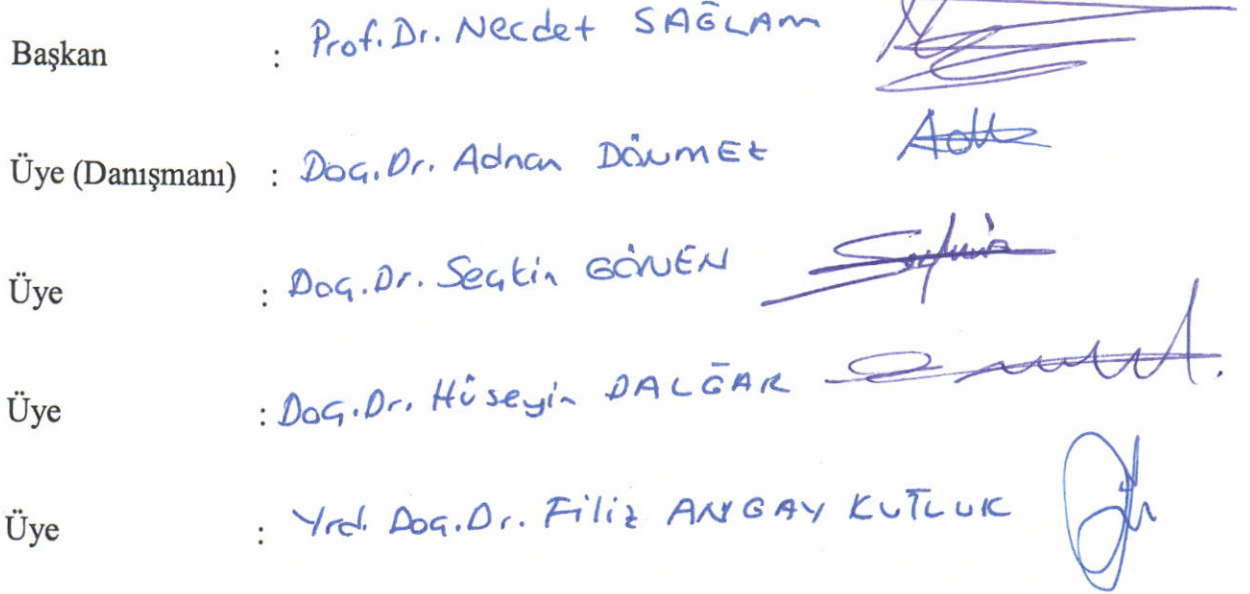 Başkan : Prof.Dr. Necdet SAĞLAM
Üye (Danışmanı) : Doç.Dr. Adnan DÖNMEZ
Üye : Doç.Dr. Seçkin GÖNEN
Üye : Doç.Dr. Hüseyin DALĞAR
Üye : Yrd. Doç.Dr. Filiz ANGAY KUTLUK